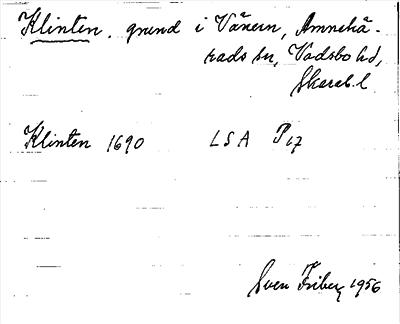 Klinten, grund i Vänern, Amnehä-
rads sn, Vadsbo hd,
Skarab. l
Klinten 1690 LSA P17
Sven Friberg 1956